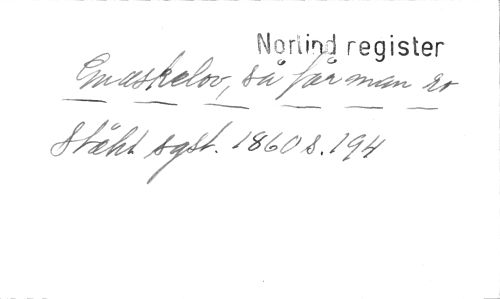 Norlind register
Gnaskelov, så får man ro
Ståhl sgst. 1860 s. 194